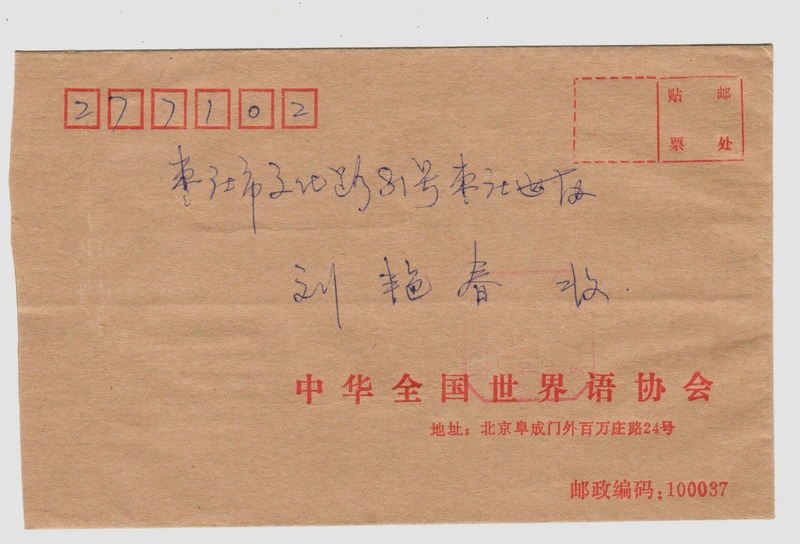 277102
贴 邮
票 处
枣庄市文化路81号枣庄世协
刘艳春 收
中华全国世界语协会
地址：北京阜成门外百万庄路24号
邮政编码：100037